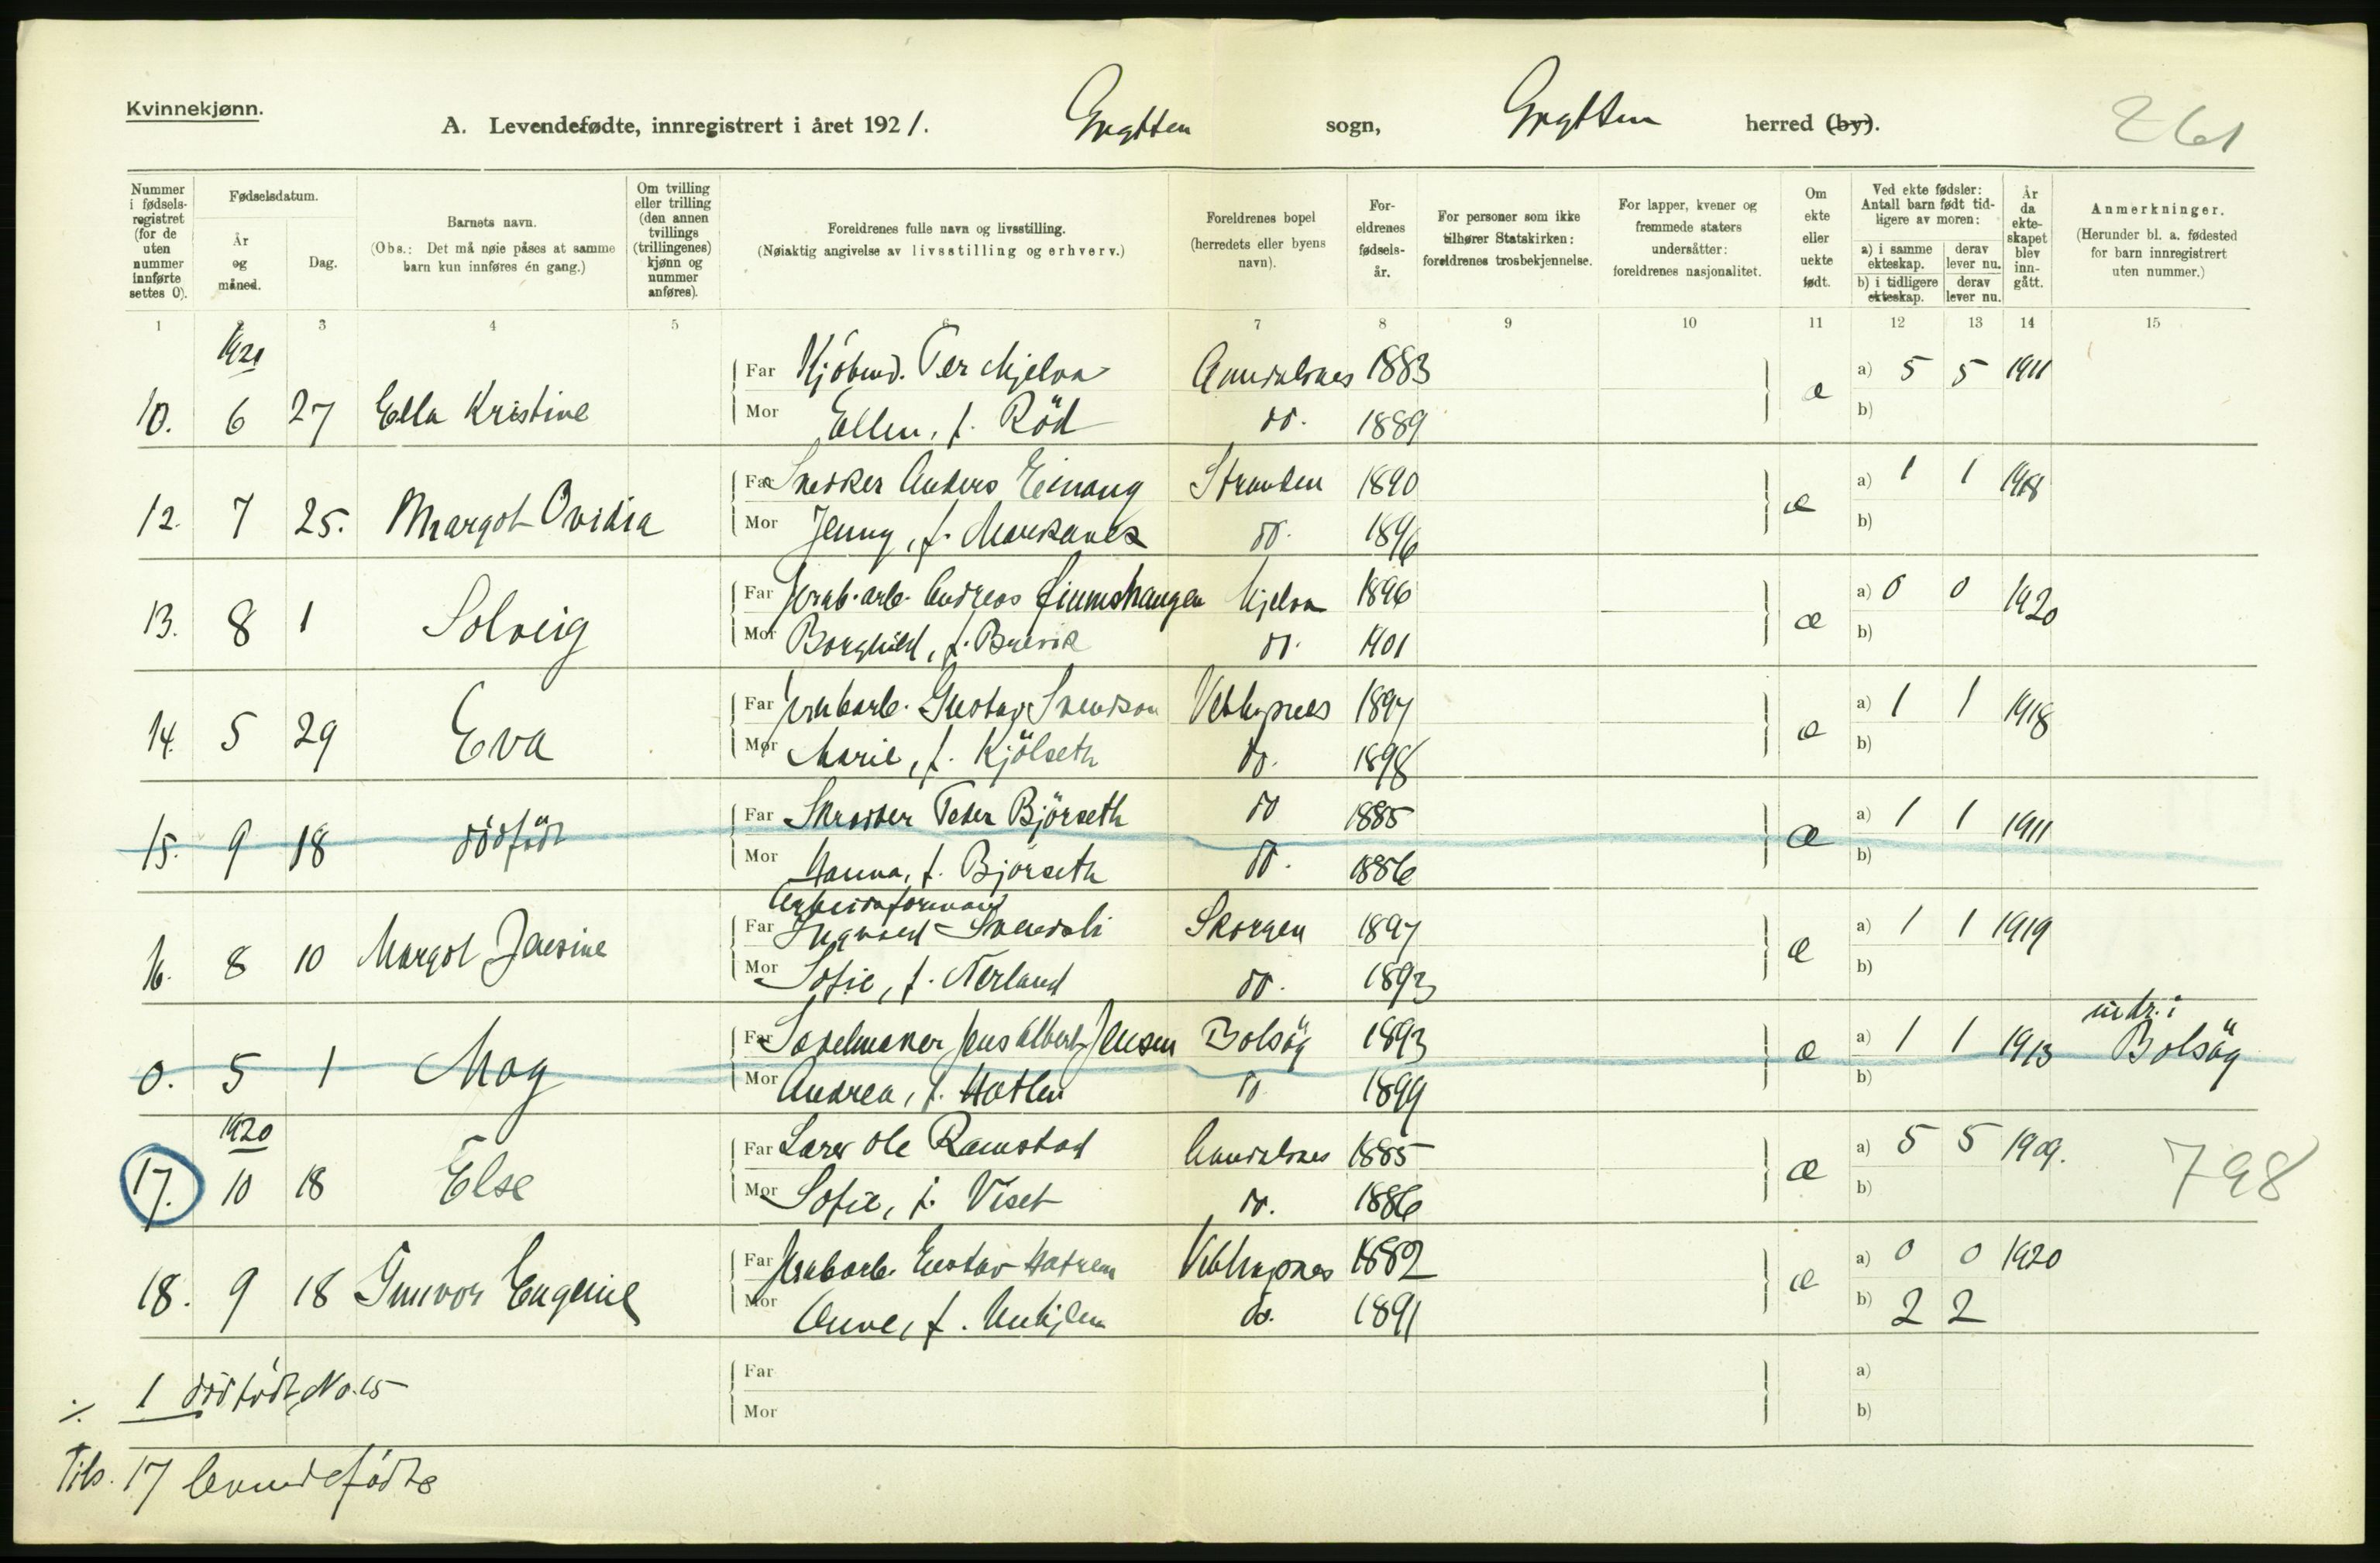 Kvinnekjønn.
A. Levendefødte, innregistrert i året 1921. Grytten sogn, Grytten herred (by).
261
Nummer i fødsels-registret (for de uten nummer innførte settes 0).
Fødselsdatum.
År og måned.
Dag.
Barnets navn.
(Obs.: Det må nøie påses at samme barn kun innføres én gang.)
Om tvilling eller trilling (den annen tvillings (trillingenes) kjønn og nummer anføres).
Foreldrenes fulle navn og livsstilling.
(Nøiaktig angivelse av livsstilling og erhverv.)
Foreldrenes bopel (herredets eller byens navn).
For-eldrenes fødsels-år.
For personer som ikke tilhører Statskirken: foreldrenes trosbekjennelse.
For lapper, kvener og fremmede staters undersåtter: foreldrenes nasjonalitet.
Om ekte eller uekte født.
Ved ekte fødsler: Antall barn født tid-ligere av moren:
a) i samme ekteskap.
derav lever nu.
b) i tidligere ekteskap.
derav lever nu.
År da ekte-skapet blev inn-gått.
Anmerkninger.
(Herunder bl. a. fødested for barn innregistrert uten nummer.)
1 2 3 4 5 6 7 8 9 10 11 12 13 14 15
1920
Far Kjöbmd. Per Mjelva Aandalsnes 1883 a) 5 5 1911
10. 6 27 Ella Kristine Mor Ellen, f. Röd do. 1889 æ b)
Far Snekker Anders Einang Stranden 1890 a) 1 1 1918
12. 7 25. Margot Ovidia Mor Jenny, f. do. 1896 æ b)
Far Jernb.arb. Andreas Mjelva 1896 a) 0 0 1920
13. 8 1 Solveig Mor Borghild, f. Brevik do. 1901 æ b)
Far Jernbarb. Gustav Svendsen Veblugsnes 1897 a) 1 1 1918
14. 5 29 Eva Mor Marie, f. Kjölseth do. 1898 æ b)
Far Skrædder Peter Björseth do 1885 a) 1 1 1911
15. 9 18 dödfödt Mor Hanna, f. Björseth do. 1886 æ b)
Arbeidsformand
Far Ingvald Svendsli Skorgen 1897 a) 1 1 1919
16. 8 10 Margot Jensine Mor Sofie, f. Nerland do. 1893 æ b)
indr. i
Far Sadelmaker Jens Albert Jensen Bolsöy 1893 a) 1 1 1913 Bolsöy
0. 5 1 May Mor Andrea, f. Hatlen do 1899 æ b)
1920
Far Lærer Ole Ramstad Aandalsnes 1885 a) 5 5 1909.
17. 10 18 Else Mor Sofie, f. Viset do. 1886 æ b) 798
Far Jernbarb. Gustav Hatrem Veblugsnes 1882 a) 0 0 1920
18. 9 18 Gunvor Eugenie Mor Anne, f. Unhjem do. 1891 æ b) 2 2
Far a)
÷ 1 dödfödt, No. 15 Mor b)
Tils. 17 levendefödte